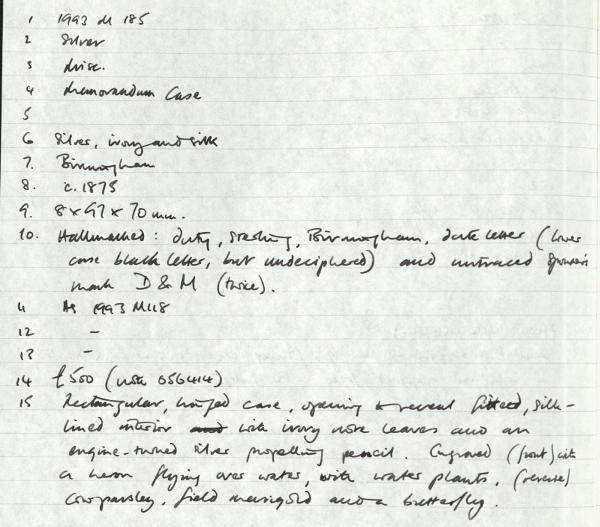 1 1993 M 185
2 Silver
3 Misc.
4 Memorandum Case
5
6 Silver, ivory and silk
7. Birmingham
8. c. 1875
9. 8 x 97 x 70 mm.
10. Hallmarked: duty, sterling, Birmingham, date letter (lower
case black letter, but undeciphered) and untraced sponsor's
mark D & M (twice).
11 As 1993 M118
12 –
13 –
14 £500 (note 056414)
15 Rectangular, hinged case, opening to reveal fitted, silk-
lined interior and with ivory note leaves and an
engine-turned silver propelling pencil. Engraved (front) with
a heron flying over water, with water plants, (reverse)
cowparsley, field marigold and a butterfly.